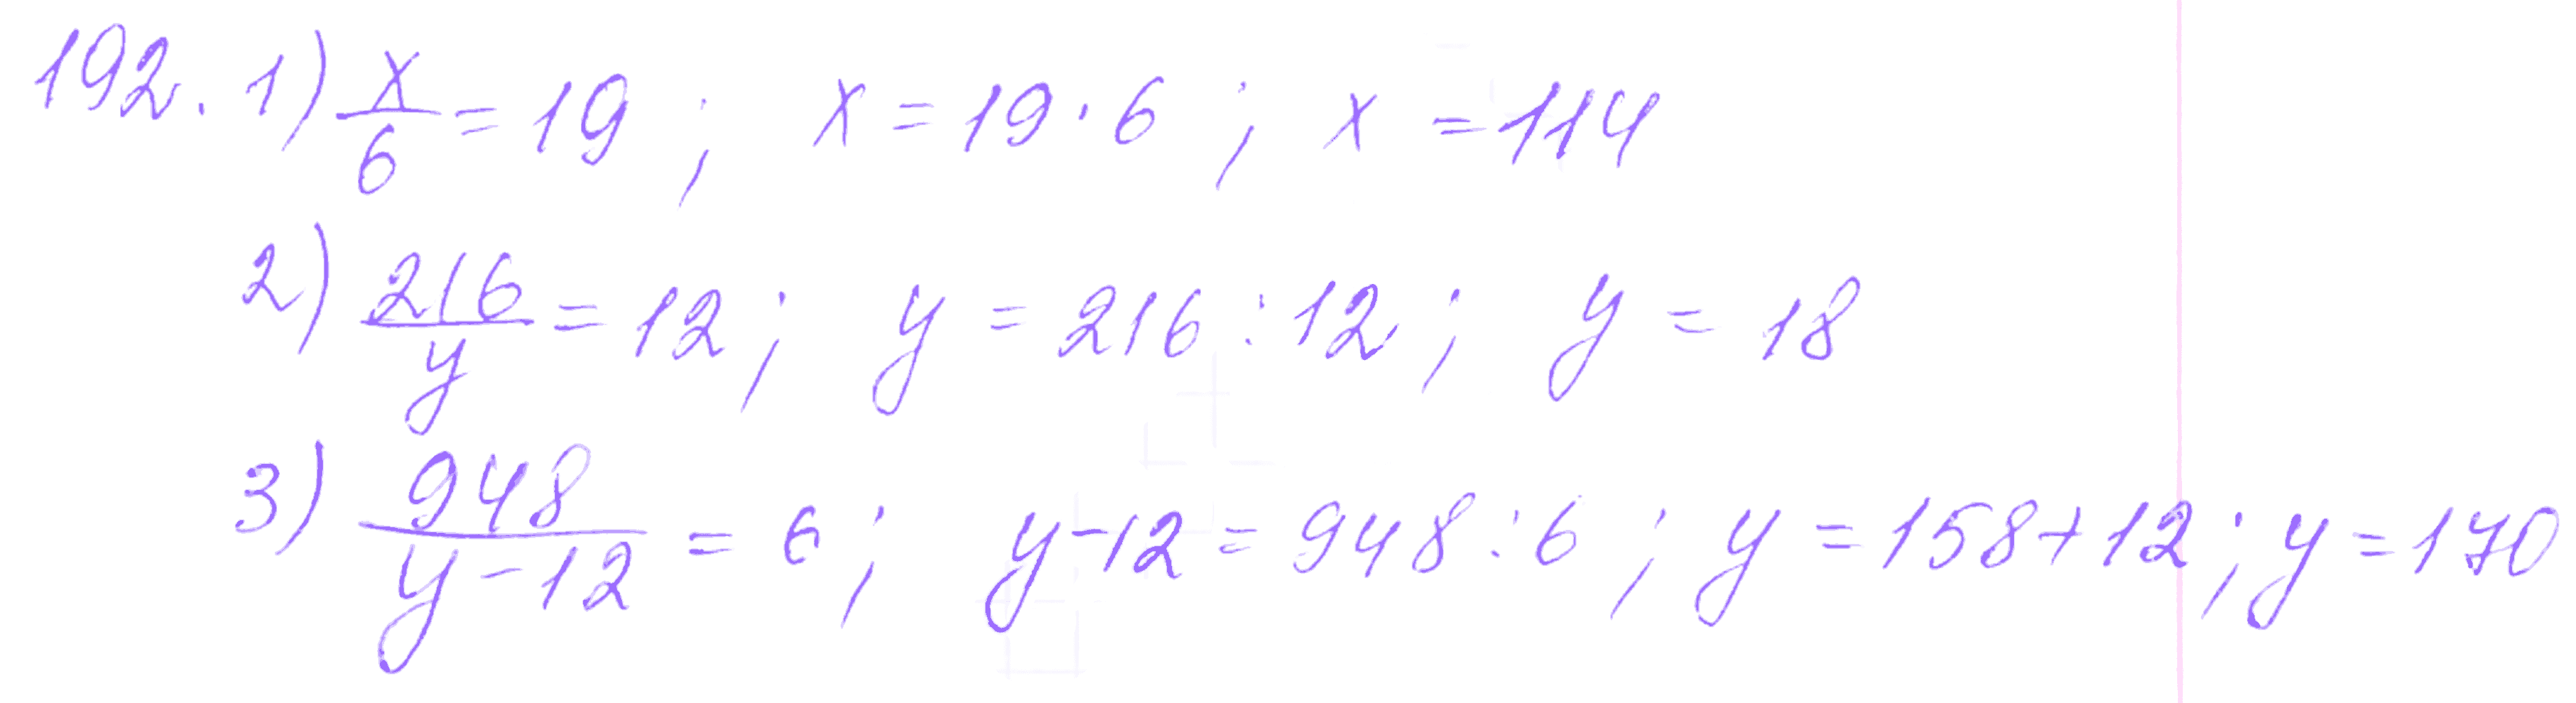 192. 1) x/6 = 19 ; x = 19 · 6 ; x = 114
2) 216/y = 12 ; y = 216 : 12 ; y = 18
3) 948/(y - 12) = 6 ; y - 12 = 948 : 6 ; y = 158 + 12 ; y = 170